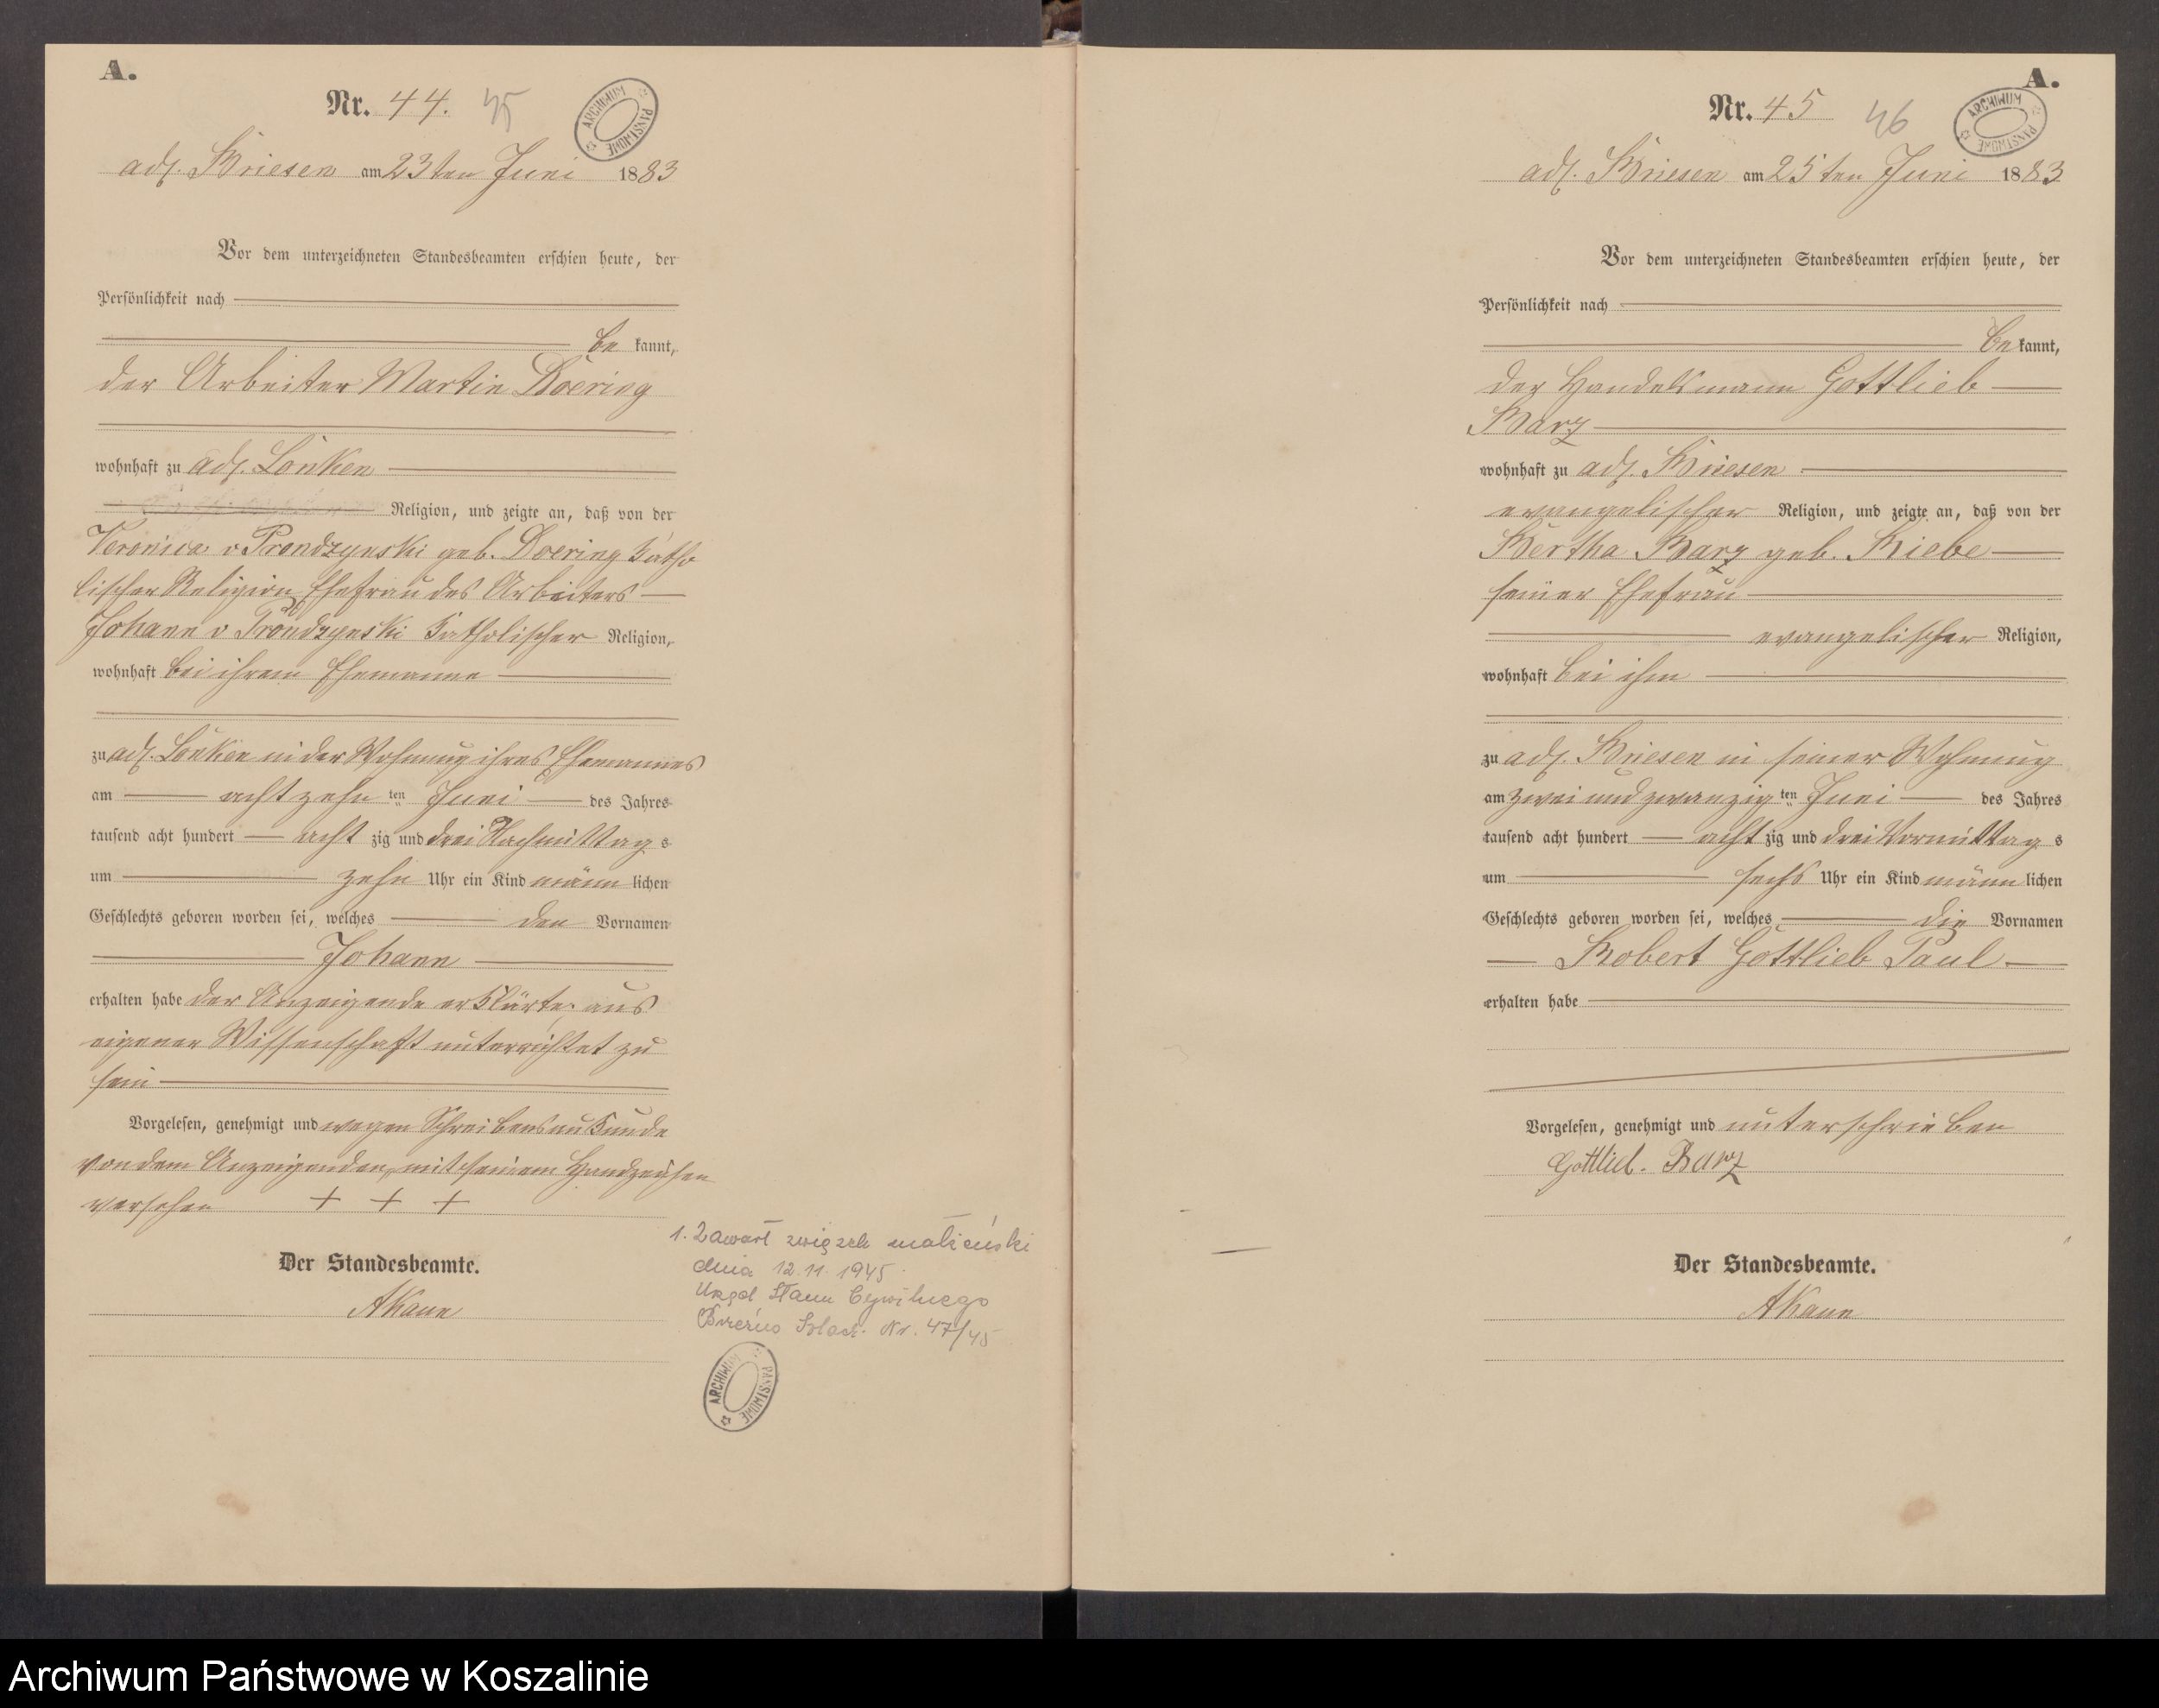 A.
Nr. 44. 45
ARCHIWUM PAŃSTWOWE
adl. Briesen am 23ten Juni 1883
Vor dem unterzeichneten Standesbeamten erschien heute, der
Persönlichkeit nach
be kannt,
der Arbeiter Martin Doering
wohnhaft zu adl. Lonken
Religion, und zeigte an, daß von der
Veronica v Prondzynski geb. Doering katho
lischer Religion Ehefrau des Arbeiters
Johann v Prondzynski katholischer Religion,
wohnhaft bei ihrem Ehemanne
zu adl. Lonken in der Wohnung ihres Ehemannes
am achtzehn ten Juni des Jahres
tausend acht hundert acht zig und drei Nachmittag s
um zehn Uhr ein Kind männ lichen
Geschlechts geboren worden sei, welches den Vornamen
Johann
erhalten habe der Anzeigende erklärte, aus
eigener Wissenschaft unterrichtet zu
sein
Vorgelesen, genehmigt und wegen Schreibensunkunde
von dem Anzeigenden mit seinem Handzeichen
versehen + + +
Der Standesbeamte.
AKann
1. Zawarł związek małżeński
dnia 12.11.1945
Urząd Stanu Cywilnego
Brzeźno Szlach. Nr. 47/45
ARCHIWUM PAŃSTWOWE
A.
Nr. 45 46
ARCHIWUM PAŃSTWOWE
adl. Briesen am 25ten Juni 1883
Vor dem unterzeichneten Standesbeamten erschien heute, der
Persönlichkeit nach
be kannt,
der Handelsmann Gottlieb
Barz
wohnhaft zu adl. Briesen
evangelischer Religion, und zeigte an, daß von der
Bertha Barz geb. Kiebe
seiner Ehefrau
evangelischer Religion,
wohnhaft bei ihm
zu adl. Briesen in seiner Wohnung
am zwei und zwanzig ten Juni des Jahres
tausend acht hundert acht zig und drei Vormittag s
um sechs Uhr ein Kind männ lichen
Geschlechts geboren worden sei, welches die Vornamen
Robert Gottlieb Paul
erhalten habe
Vorgelesen, genehmigt und unterschrieben
Gottlieb. Barz
Der Standesbeamte.
AKann
Archiwum Państwowe w Koszalinie